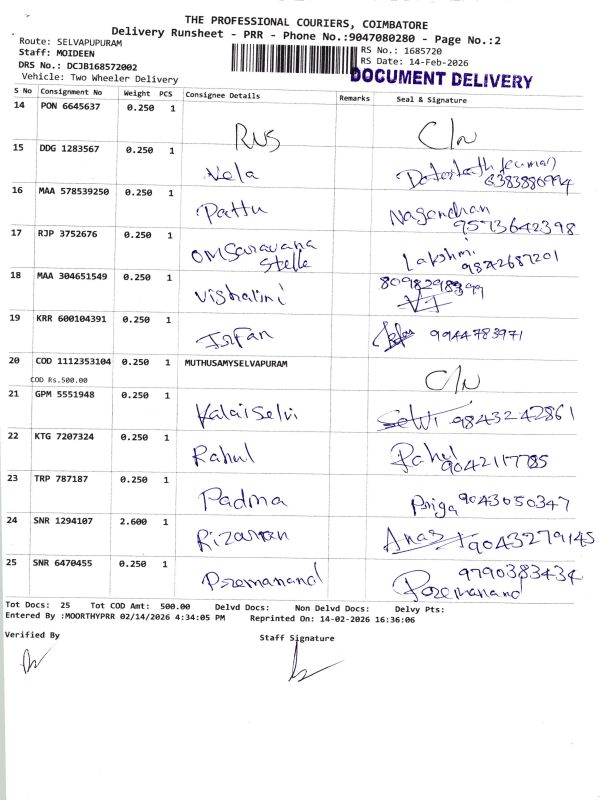 THE PROFESSIONAL COURIERS, COIMBATORE
Delivery Runsheet - PRR - Phone No.:9047080280 - Page No.:2
Route: SELVAPUPURAM
RS No.: 1685720
Staff: MOIDEEN
RS Date: 14-Feb-2026
DRS No.: DCJB168572002
DOCUMENT DELIVERY
Vehicle: Two Wheeler Delivery
S No Consignment No Weight PCS Consignee Details Remarks Seal & Signature
14 PON 6645637 0.250 1 RVS C/N
15 DDG 1283567 0.250 1 Vela 6383886994
16 MAA 578539250 0.250 1 Pattu Nagendran 9573642398
17 RJP 3752676 0.250 1 OMSaravana Stelle Lakshmi 9842687201
18 MAA 304651549 0.250 1 Vishalini
19 KRR 600104391 0.250 1 Irfan 9944783971
20 COD 1112353104 0.250 1 MUTHUSAMYSELVAPURAM C/N
COD Rs.500.00
21 GPM 5551948 0.250 1 Kalaiselvi Selvi 9843242861
22 KTG 7207324 0.250 1 Rahul Rahul 9042117785
23 TRP 787187 0.250 1 Padma Priga 9043050347
24 SNR 1294107 2.600 1 Rizawan Anas 9043279145
25 SNR 6470455 0.250 1 Premanand 9790383434 Premanand
Tot Docs: 25 Tot COD Amt: 500.00 Delvd Docs: Non Delvd Docs: Delvy Pts:
Entered By :MOORTHYPRR 02/14/2026 4:34:05 PM Reprinted On: 14-02-2026 16:36:06
Verified By Staff Signature